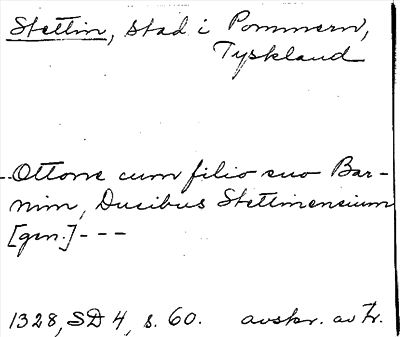 Stettin, stad i Pommern,
Tyskland
--Ottone cum filio suo Bar-
nim, Ducibus Stettinensium
[gen.]---
1328, SD 4, s. 60. avskr. av Fr.